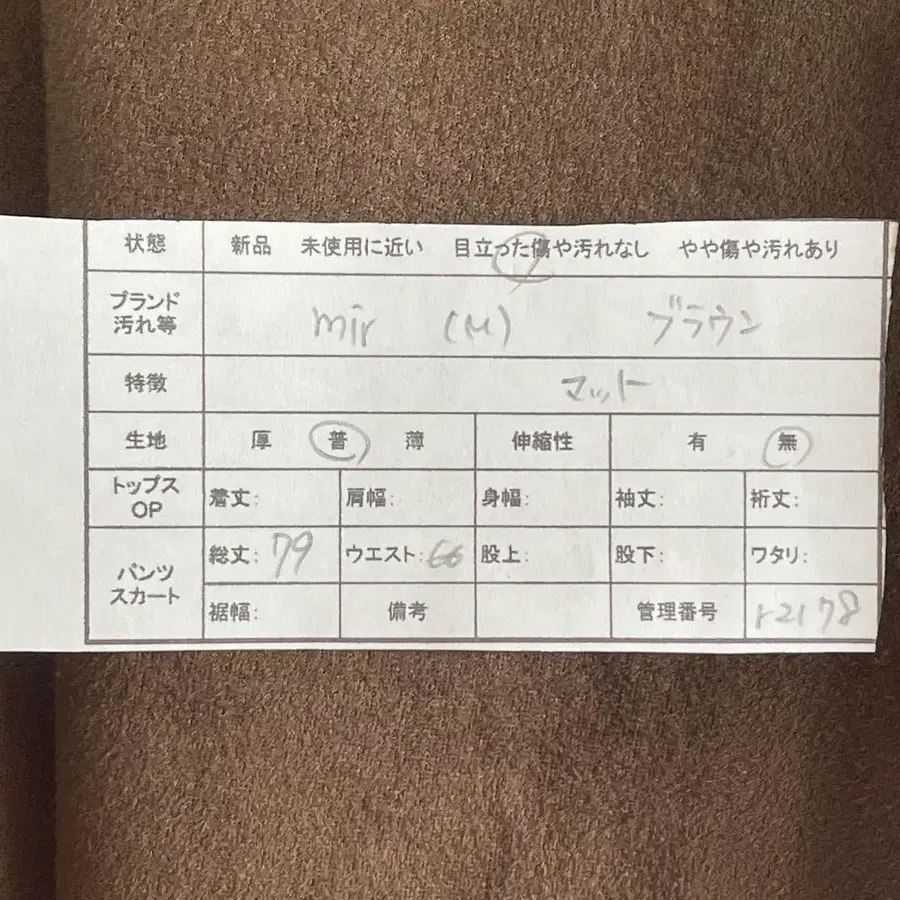 状態 新品 未使用に近い 目立った傷や汚れなし やや傷や汚れあり
ブランド
汚れ等 mir (M) ブラウン
特徴 マット
生地 厚 普 薄 伸縮性 有 無
トップス
OP 着丈: 肩幅: 身幅: 袖丈: 裄丈:
総丈: 79 ウエスト: 66 股上: 股下: ワタリ:
パンツ
スカート
裾幅: 備考 管理番号 r2178